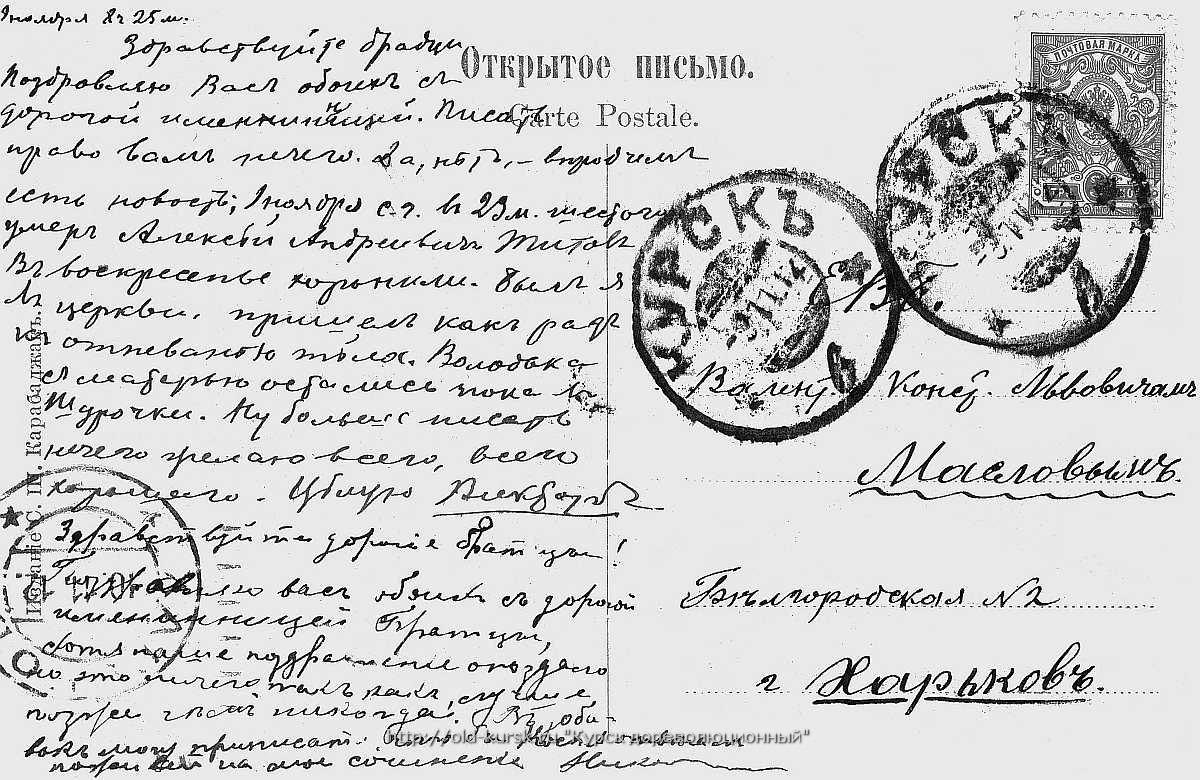 9 ноября 8 ч 25 м.
Здравствуйте братцы
Поздравляю Васъ обоихъ съ
дорогой именинницей. Писать
право вамъ нечего. Да, нѣтъ, – впрочемъ
есть новость; 1 ноября с. г. въ 23 м. шестого
умеръ Алексѣй Андреевичъ Титовъ
Въ воскресенье хоронили. Былъ я
въ церкви. пришелъ какъ разъ
къ отпеванью тѣла. Володька
съ матерью остались пока
Шурочки. Ну больше писать
нечего желаю всего, всего
хорошего. Цѣлую
Здравствуйте дорогие братцы!
Поздравляю васъ обоихъ съ дорогой
именинницей Братцы,
хотя наше поздравление опоздало
но это ничего такъ какъ лучше
позже чемъ никогда.
вокъ могу приписать
на мое сочинение
Открытое письмо.
Carte Postale.
ПОЧТОВАЯ МАРКА
КУРСКЪ
КУРСКЪ
Валент. Конст. Львовичамъ
Масловымъ.
Бѣлгородская № 2
г Харьковъ.
Изданіе С. Ш. Карабаджакъ.
http://old-kursk.ru "Курск дореволюционный"